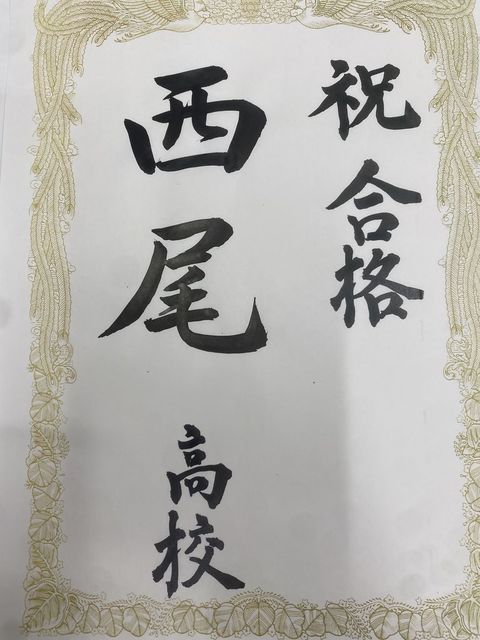 祝合格
西尾高校